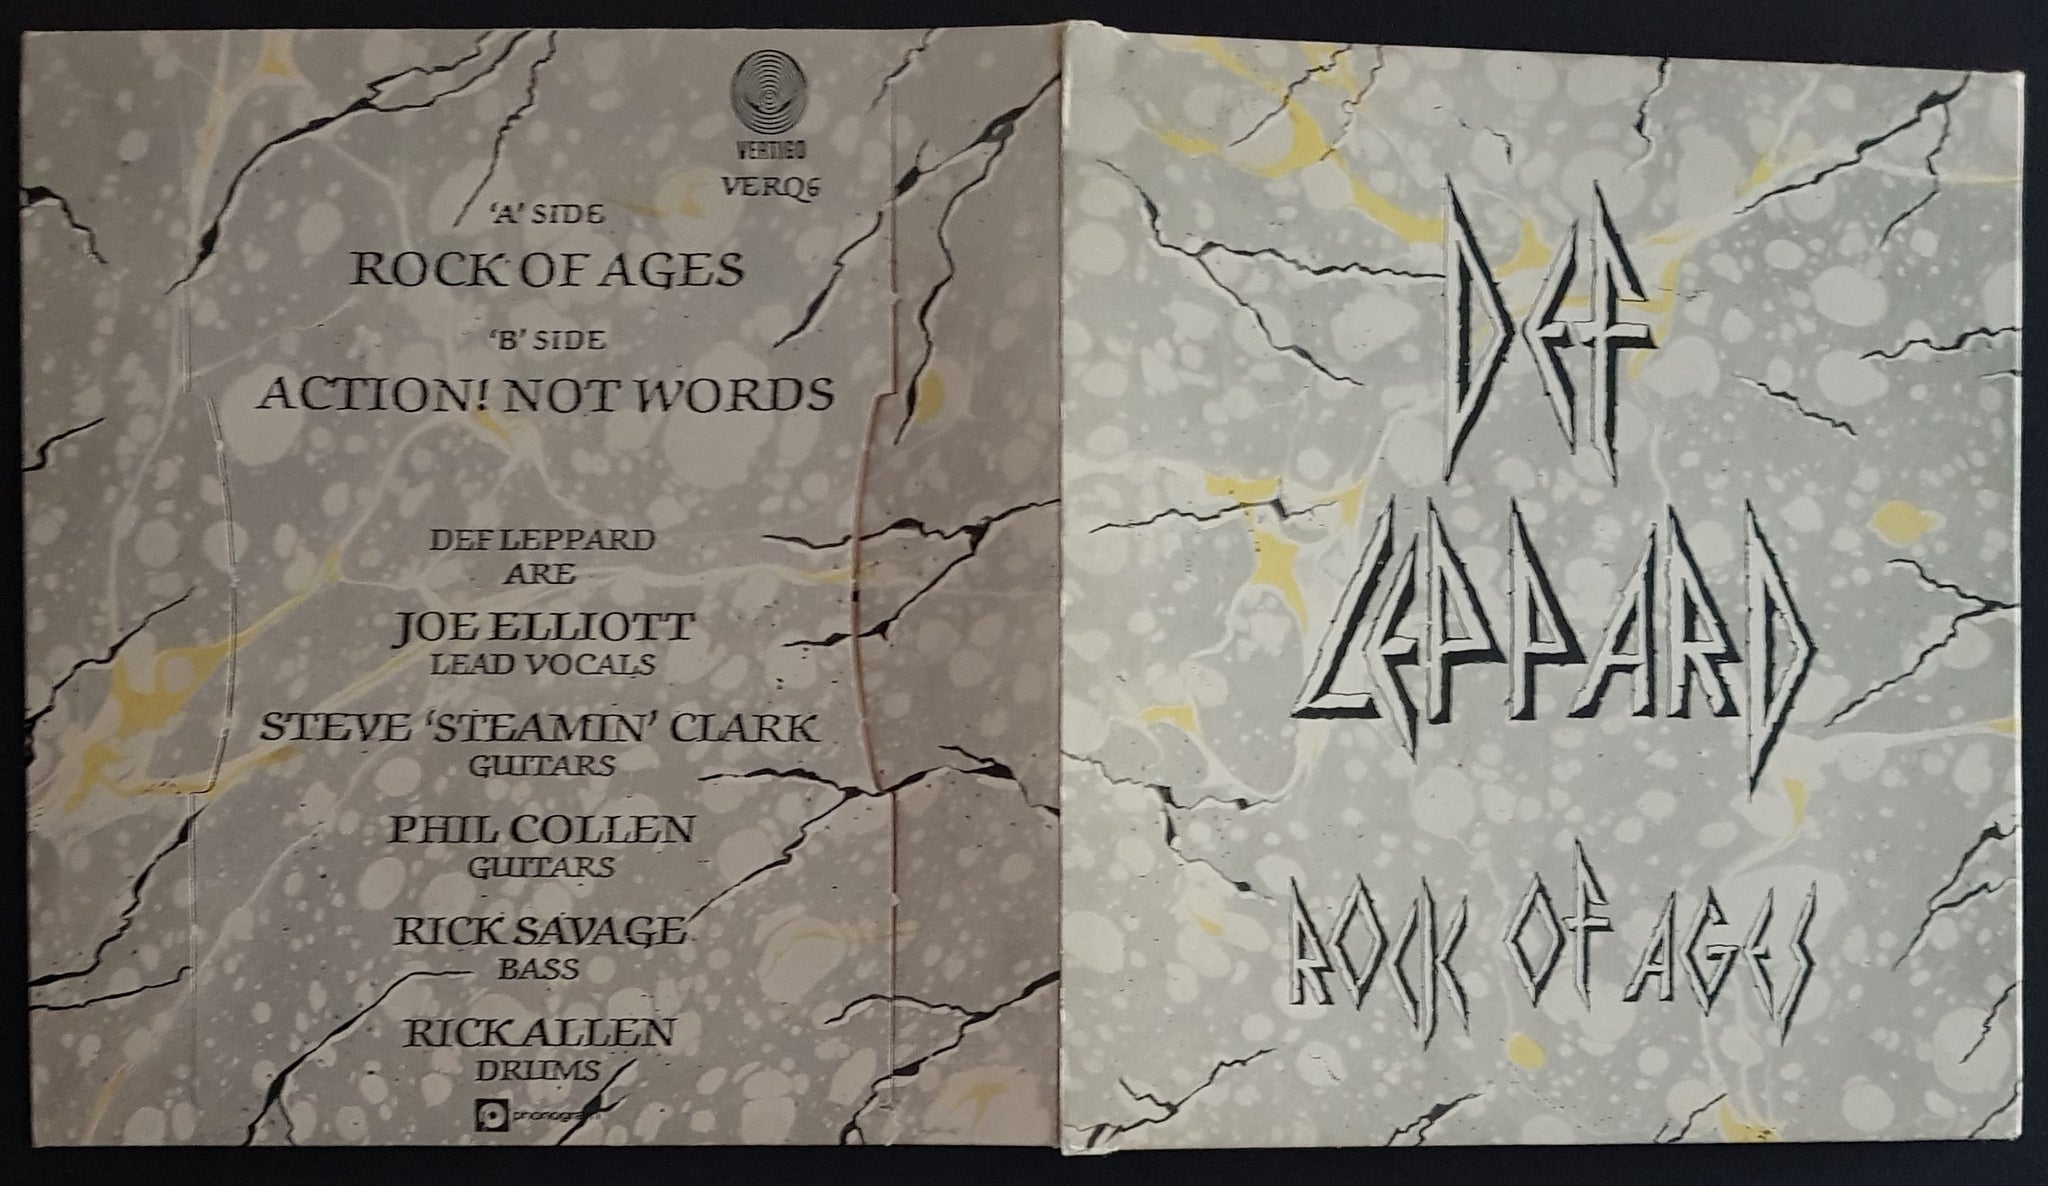 VERTIGO
VERQ6
'A' SIDE
ROCK OF AGES
'B' SIDE
ACTION! NOT WORDS
DEF LEPPARD
ARE
JOE ELLIOTT
LEAD VOCALS
STEVE 'STEAMIN' CLARK
GUITARS
PHIL COLLEN
GUITARS
RICK SAVAGE
BASS
RICK ALLEN
DRUMS
phonogram
DEF
LEPPARD
ROCK OF AGES